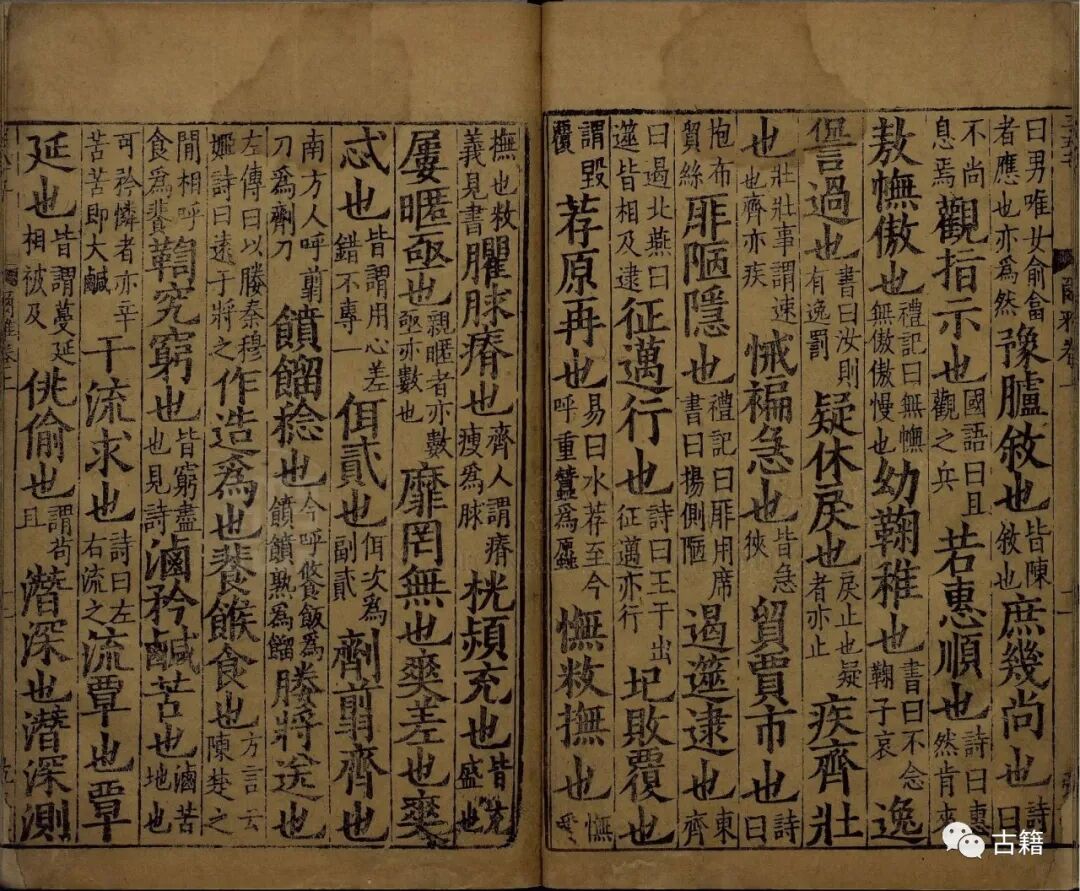 爾雅卷上
曰男唯女俞畣者應也亦爲然豫臚敘也皆陳敘也庶幾尚也詩曰
不尚息焉觀指示也國語曰且觀之兵若惠順也詩曰惠然肯來
敖憮傲也禮記曰無憮無傲傲慢也幼鞠稚也書曰不念鞠子哀逸
諐過也書曰汝則有逸罰疑休戾也戾止也疑者亦止疾齊壯
也壯壯事謂速也齊亦疾悈褊急也皆急狹貿賈市也詩曰
抱布貿絲厞陋隱也禮記曰厞用席書曰揚側陋遏遾逮也東齊
曰遏北燕曰遾皆相及逮征邁行也詩曰王于出征邁亦行圮敗覆也
謂毀覆荐原再也易曰水荐至今呼重蠶爲䘃憮敉撫也憮愛
撫也敉義見書臞脙瘠也齊人謂瘠瘦爲脙桄熲充也皆充盛也
屢暱亟也親暱者亦數亟亦數也靡罔無也爽差也爽
忒也皆謂用心差錯不專一佴貳也佴次爲副貳劑翦齊也
南方人呼翦刀爲劑刀饙餾稔也今呼餐飯爲饙饙熟爲餾媵將送也
左傳曰以媵秦穆姬詩曰遠于將之作造爲也餥餱食也方言云陳楚之
間相呼食爲餥鞫究窮也皆窮盡也見詩滷矜鹹苦也滷苦地也
可矜憐者亦辛苦苦即大鹹干流求也詩曰左右流之流覃也覃
延也皆謂蔓延相被及佻偷也謂苟且潛深也潛深測
爾雅卷上
古籍